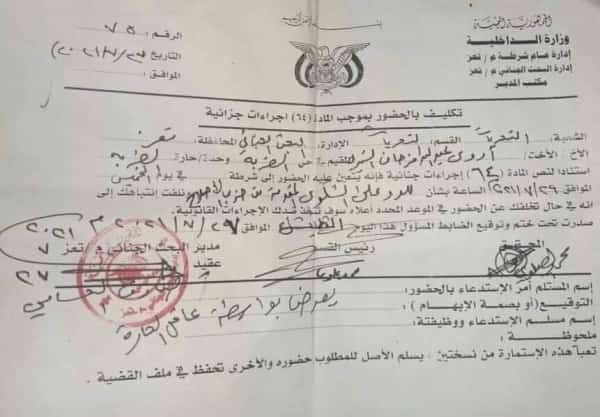 الجمهورية اليمنية
وزارة الداخلية
إدارة عام شرطة م / تعز
إدارة البحث الجنائي م / تعز
مكتب المدير
الرقم:
التاريخ
الموافق:
تكليف بالحضور بموجب المادة (٦٤) اجراءات جزائية
الشعبة: التحريات القسم: التحريات الإدارة: البحث الجنائي المحافظة: تعز
الأخ / الأخت: أروى المقيم في حي الضربة وحدة/حارة الضربة
استنادا لنص المادة (٦٤) اجراءات جنائية فإنه يتعين عليه الحضور إلى شرطة في يوم الخميس
الموافق ٢٩/٧/٢٠٢١ الساعة بشأن للرد على الشكوى المقدمة من حزب الاصلاح ونلفت انتباهك إلى
انه في حال تخلفك عن الحضور في الموعد المحدد أعلاه سوف نتخذ ضدك الإجراءات القانونية.
صدرت تحت ختم وتوقيع الضابط المسؤول هذا اليوم الموافق ٢٧/٧/٢٠٢١ م
المحقق رئيس القسم مدير البحث الجنائي م تعز
عقيد
إسم المستلم أمر الإستدعاء بالحضور:
التوقيع (أو بصمة الإبهام):
إسم مسلم الإستدعاء ووظيفته:
ملحوظة:
يعرضا بواسطة عاقل الحارة
تعبأ هذه الإستمارة من نسختين، يسلم الأصل للمطلوب حضوره والأخرى تحفظ في ملف القضية.